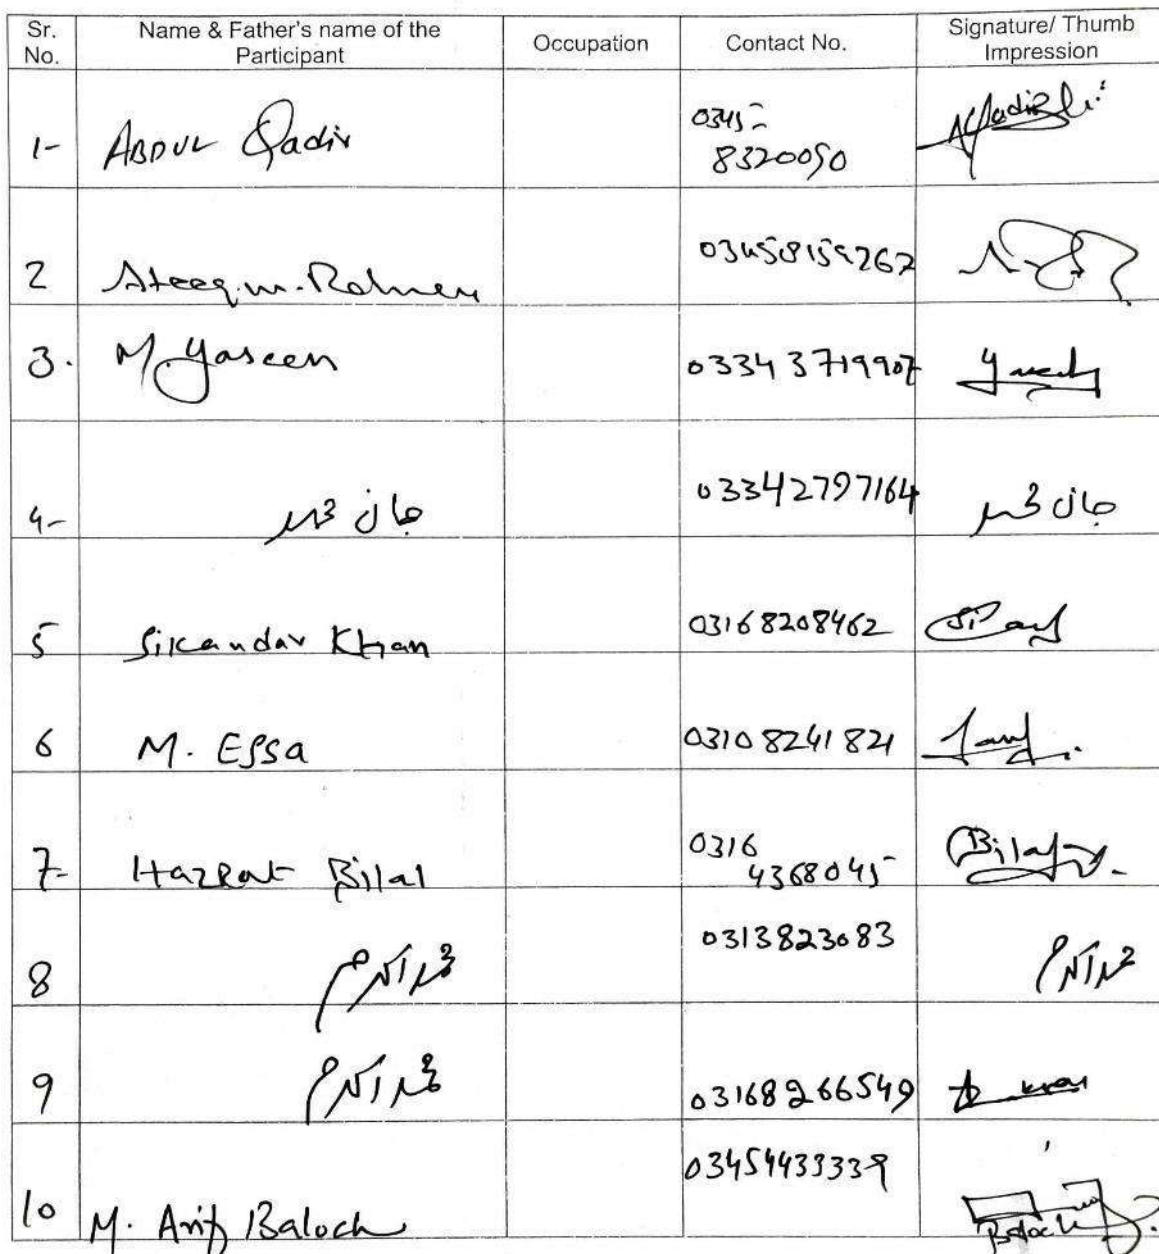 Sr. No. Name & Father's name of the Participant Occupation Contact No. Signature/ Thumb Impression
1- ABDUL Qadir 0345- 8320050 AQadir
2 Ateeq.ur.Rahman 03458159262
3. M. Yaseen 03343719907 Yaseen
4- جان محمد 03342797164 جان محمد
5 Sikandar Khan 03168208462
6 M. Essa 03108241821
7- Hazrat Bilal 0316 4368045 Bilal
8 محمد اکرم 0313823083 محمد اکرم
9 محمد اکرم 03168266549
10 M. Arif Baloch 03454433339 Baloch